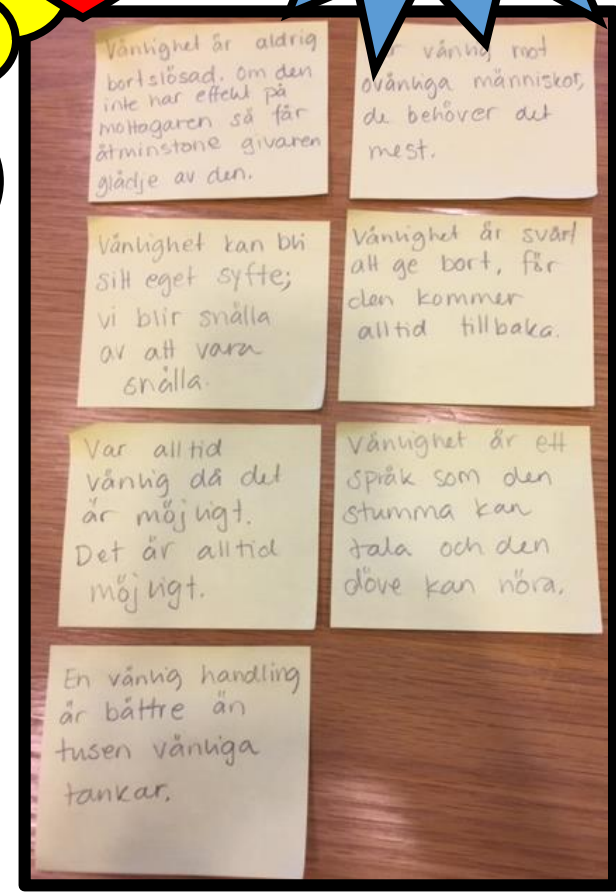 Vänlighet är aldrig
bortslösad. Om den
inte har effekt på
mottagaren så får
åtminstone givaren
glädje av den.
vänlig mot
ovänliga människor,
de behöver det
mest.
Vänlighet kan bli
sitt eget syfte;
vi blir snälla
av att vara
snälla.
Vänlighet är svårt
att ge bort, för
den kommer
alltid tillbaka.
Var alltid
vänlig då det
är möjligt.
Det är alltid
möjligt.
Vänlighet är ett
språk som den
stumma kan
tala och den
döve kan höra.
En vänlig handling
är bättre än
tusen vänliga
tankar.